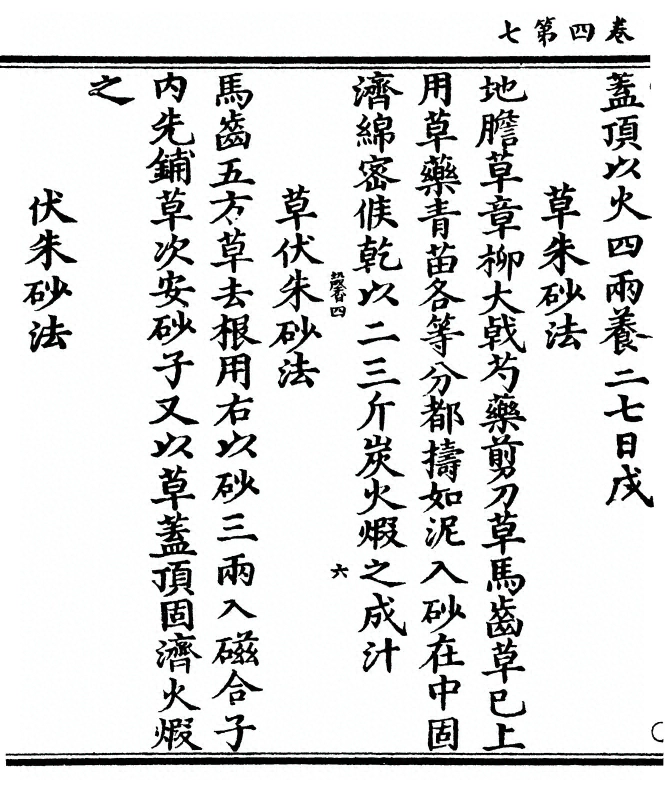 卷四第七
蓋頂以火四兩養二七日成
草朱砂法
地膽草章柳大戟芍藥剪刀草馬齒草已上
用草藥青苗各等分都擣如泥入砂在中固
濟綿密候乾以二三斤炭火煆之成汁
六
草伏朱砂法
馬齒五方草去根用右以砂三兩入磁合子
內先鋪草次安砂子又以草蓋頂固濟火煆
之
伏朱砂法